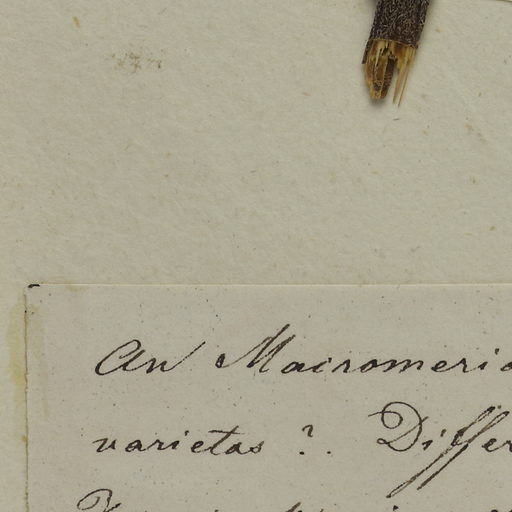 An Macromeria
varietas ?. Differ